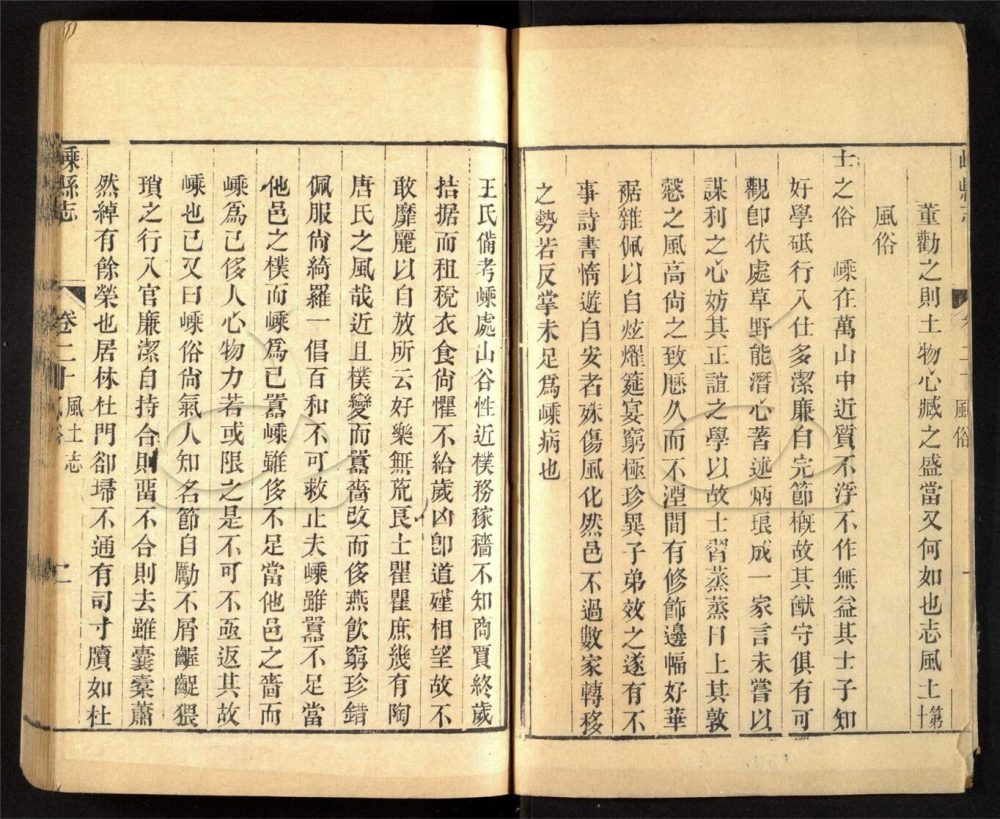 董勸之則土物心臧之盛當又何如也志風土第十
風俗
士之俗 嵊在萬山中近質不浮不作無益其士子知
好學砥行入仕多潔廉自完節概故其猷守俱有可
觀卽伏處草野能潛心著述炳琅成一家言未嘗以
謀利之心妨其正誼之學以故士習蒸蒸日上其敦
慤之風高尙之致歷久而不湮間有修飾邊幅好華
裾雜佩以自炫燿筵宴窮極珍異子弟效之遂有不
事詩書惰遊自安者殊傷風化然邑不過數家轉移
之勢若反掌未足爲嵊病也
王氏備考嵊處山谷性近樸務稼穡不知商賈終歲
拮据而租稅衣食尙懼不給歲凶卽道殣相望故不
敢靡麗以自放所云好樂無荒良士瞿瞿庶幾有陶
唐氏之風哉近且樸變而囂嗇改而侈燕飮窮珍錯
佩服尙綺羅一倡百和不可救止夫嵊雖囂不足當
他邑之樸而嵊爲已囂嵊雖侈不足當他邑之嗇而
嵊爲已侈人心物力若或限之是不可不亟返其故
嵊也已又曰嵊俗尙氣人知名節自勵不屑齷齪猥
瑣之行入官廉潔自持合則畱不合則去雖囊橐蕭
然綽有餘榮也居林杜門卻埽不通有司寸牘如杜
嵊縣志 卷二十 風土志 二